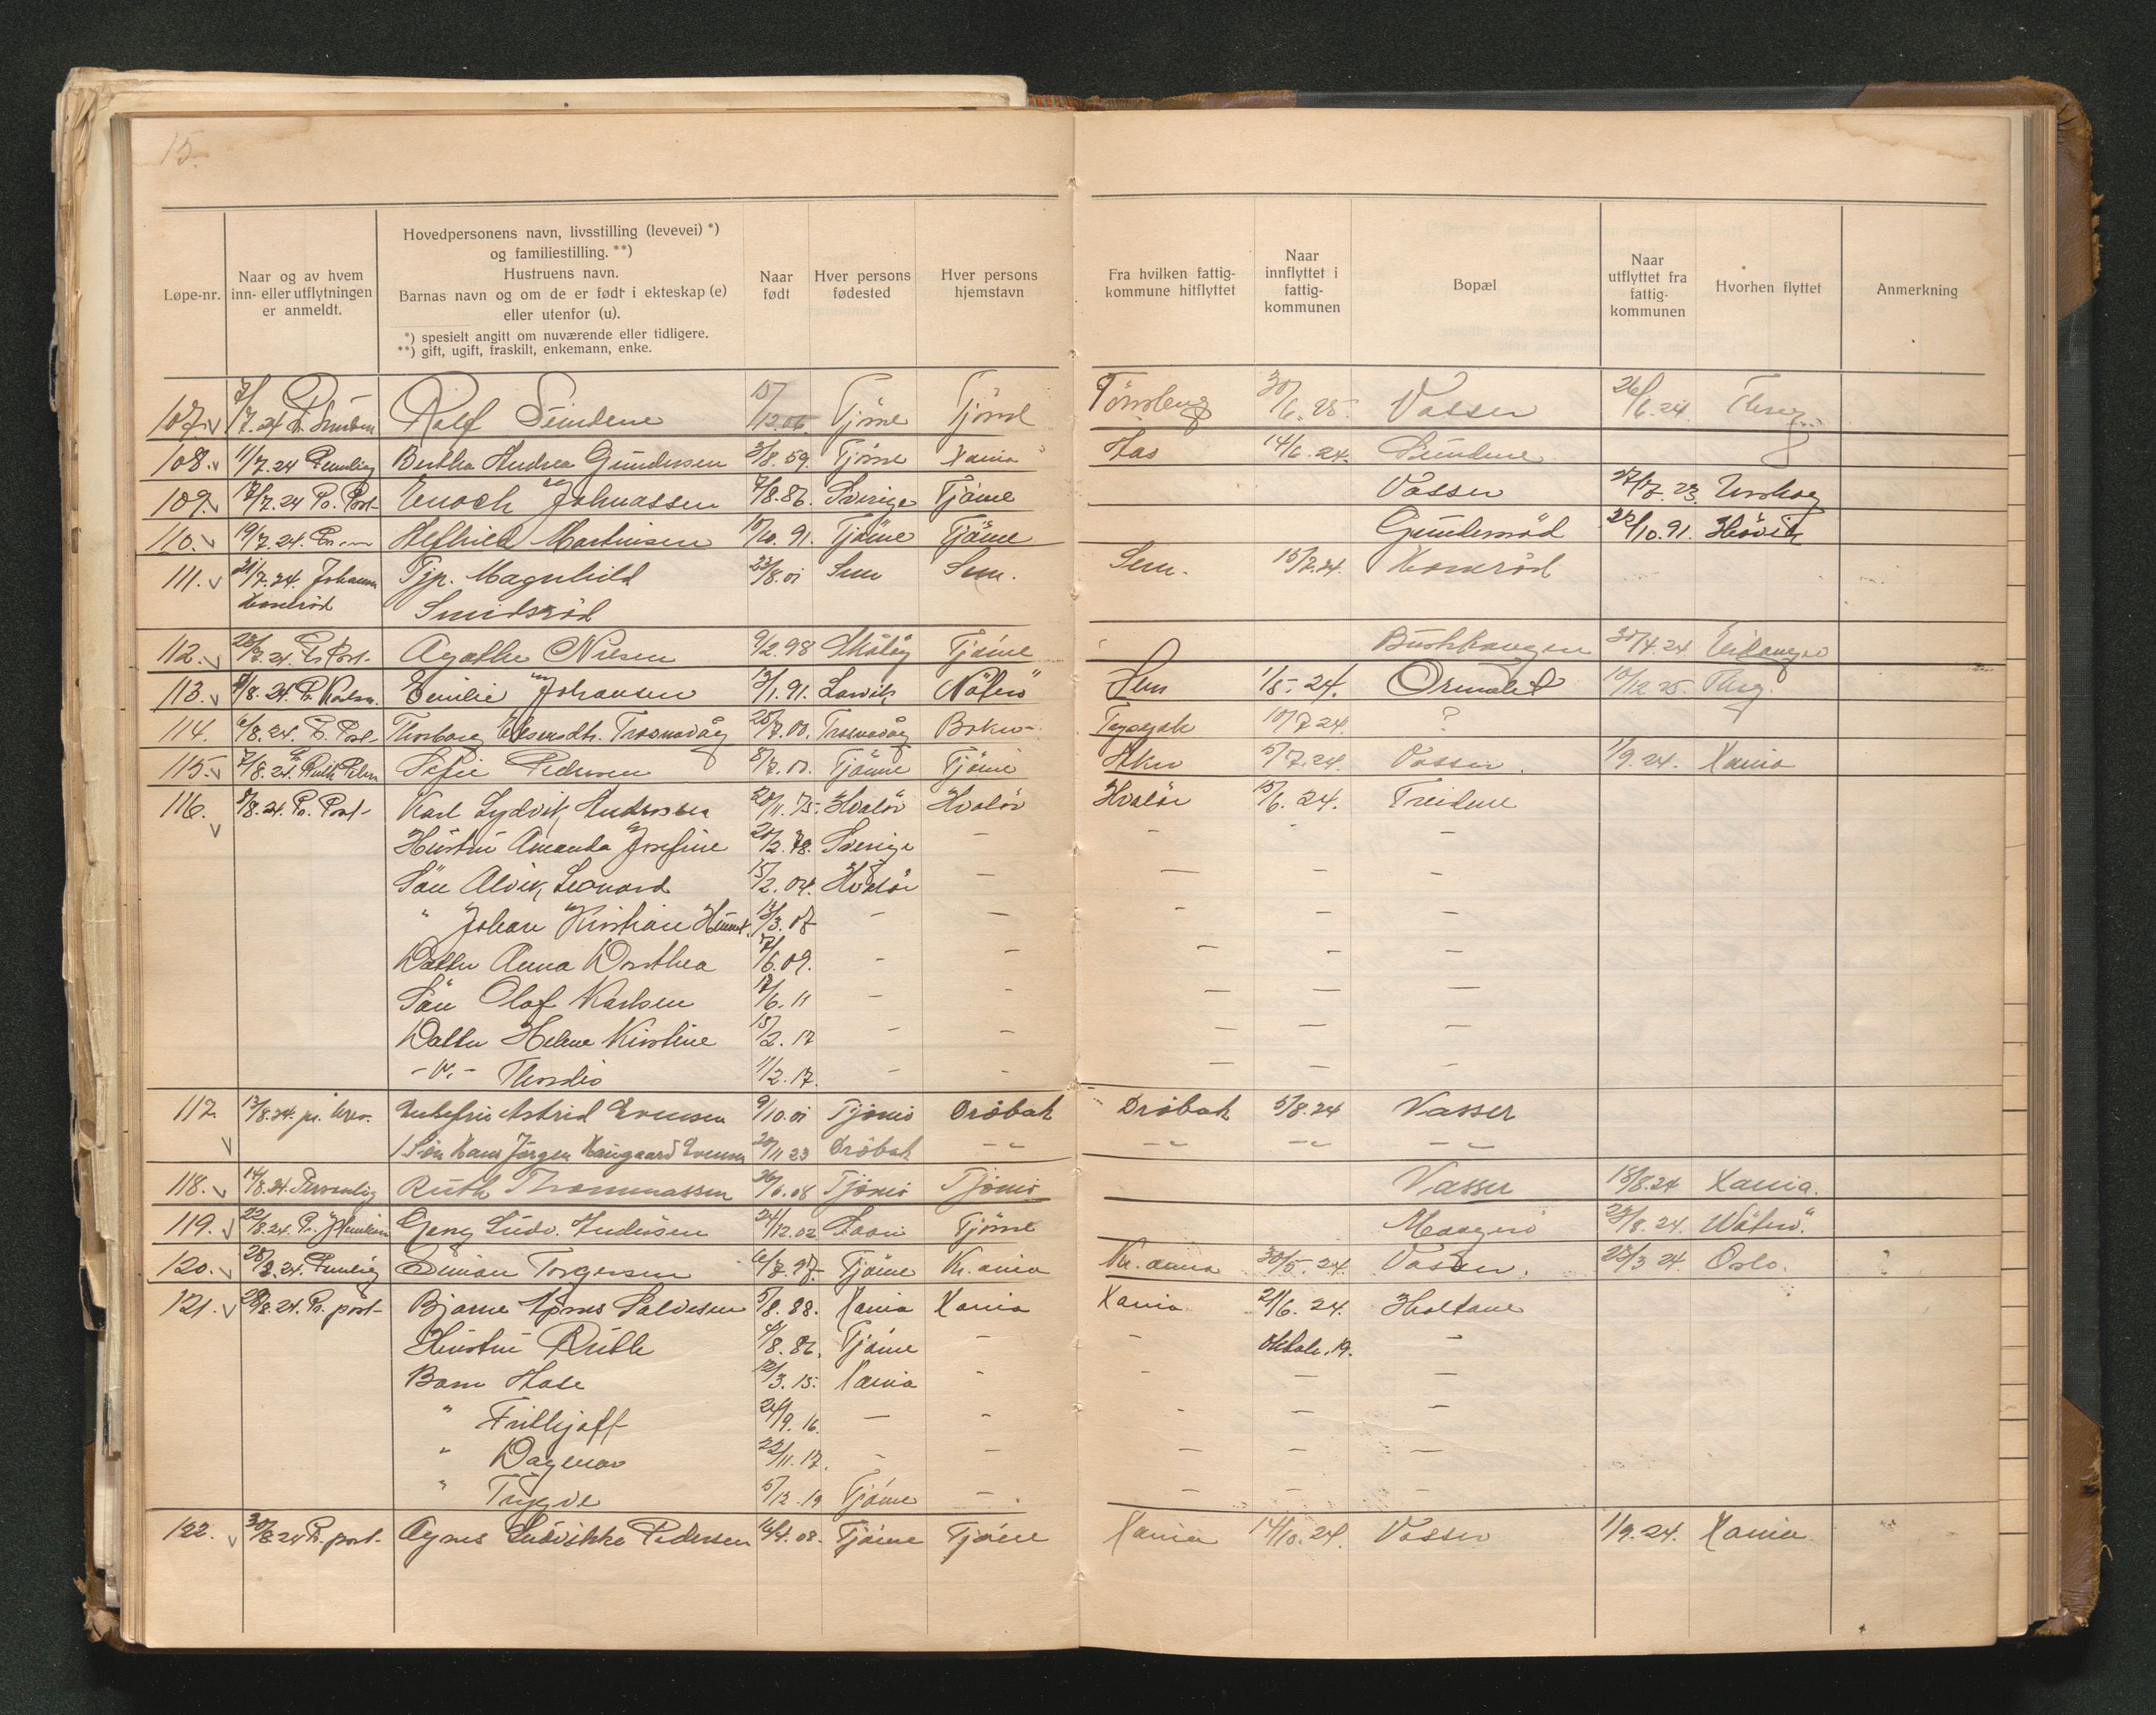 15.
Løpe-nr.
Naar og av hvem
inn- eller utflytningen
er anmeldt.
Hovedpersonens navn, livsstilling (levevei) *)
og familiestilling. **)
Hustruens navn.
Barnas navn og om de er født i ekteskap (e)
eller utenfor (u).
*) spesielt angitt om nuværende eller tidligere.
**) gift, ugift, fraskilt, enkemann, enke.
Naar
født
Hver persons
fødested
Hver persons
hjemstavn
Fra hvilken fattig-
kommune hitflyttet
Naar
innflyttet i
fattig-
kommunen
Bopæl
Naar
utflyttet fra
fattig-
kommunen
Hvorhen flyttet
Anmerkning
107. 7/7.24 Rolf 15/12.06. Tjöme Tjöme Tönsberg 30/6.25. Vasser 26/6.24 Tbrg.
108. 11/7.24 Bertha Andrea Gundersen 3/8.59. Tjöme Xania Aas 14/6.24. Sundene
109. 17/7.24 Pr. Post- Enoch Johnassen 7/8.86. Sverige Tjöme Vasser
110. 19/7.24. Martinsen 10/10.91. Tjöme Tjöme Gundersröd 22/10.91. Hövik
111. 21/7.24. Tjp. Magnhild 23/8.01 Sem Sem. Sem. 15/7.24. Honeröd
Smidsröd
112. 28/7.24. Pr Post- Agathe Nilsen 9/2.98 Tjöme 30/4.24
113. 4/8.24. Emilie Johansen 13/1.91. Larvik Nöterö Sem 1/5.24. Ormelet 10/12 25. Tbrg.
114. 6/8.24. Pr. Post- 28/7.00. 10/7 24. ?
115. 7/8.24. Sofie Pedersen 8/7.00. Tjöme Tjöme Aker 5/7.24. Vasser. 1/9.24. Xania
116. 8/8.24. Pr. Post- Karl Lydvik Andersen 20/11.75. Hvalör Hvalör Hvalör 15/6.24. Treidene
Hustru Amanda Josefine 20/2.78. Sverige - - - -
Sön Alvik Leonard 15/2.04. Hvalör - - - -
" Johan Kristian 13/3.07 - - - - -
Datter Anna Dorthea 7/6.09. - - - - -
Sön Olaf Karlsen 17/6.11 - - - - -
Datter Helene Kirstine 15/2.17 - - - - -
-"- Thordis 11/2.17. - - - - -
117. 13/8.24. Astrid Evensen 9/10.01 Tjömö Dröbak Dröbak 5/8.24 Vasser
1 Sön Hans Jörgen Haugaard Evensen 20/11 23 Dröbak
118. 14/8.24. Personlig Ruth Thommassen 26/6.08 Tjömö Tjömö Vasser 15/8.24 Xania.
119. 22/8.24. Georg Ludv. Andersen 24/12.02 Tjöme Maagerö 22/8.24.
120. Torgersen 6/7.97. Tjöme Kr.ania Kr.ania 30/5.24. Vasser. 23/3 24. Oslo.
121. 29/8.24. Pr. post- Bjarne Salvesen 5/8.88. Xania Xania Xania 21/6.24. Holtane
Hustru Ruth 4/8.86. Tjöme - - Oktob. 19. -
Barn Aase 12/3.15. Xania - - - -
" Frithjoff 24/9.16. - - - - -
" Dagmar 22/11.17. - - - - -
" Trygve 5/12.19 Tjöme - - - -
122. 30/8.24 Pr. post- Agnes Ludvikke Pedersen 16/4.08. Tjöme Tjöme Xania 14/10.24. Vasser 1/9.24. Xania